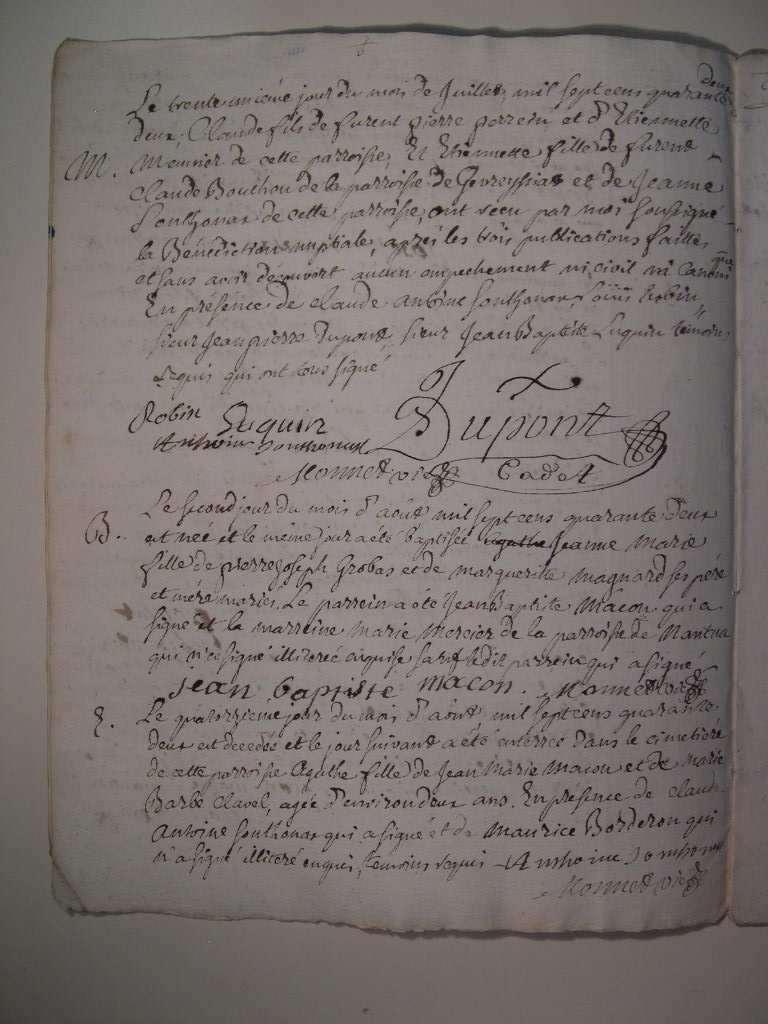 6
Le trente unieme jour du mois de Juillet, mil sept cens quarante
deux
deux, Claude fils de furent pierre perrein et d'Etiennette
M. Meunier de cette parroisse, Et Etiennette fille de furent
Claude Bouchou de la parroisse de Gevreyssiat et de Jeanne
Sonthonax de cette parroisse, ont recu par moi soussigné
la Bénédiction nuptiale, aprés les trois publications faittes
et sans avoir découvert aucun empechement ni civil ni Canoni
que
En présence de Claude Antoine Sonthonax, Robin,
sieur Jean pierre Dupont, sieur Jean Baptiste Luquin témoins
requis qui ont tous signé
Robin Luquin Dupont
Anthoine Sonthonax
Monnet vic Cadot
Le second jour du mois d'aout mil sept cens quarante deux
B. est née et le même jour a été baptisée agathe Jeanne Marie
fille de pierre joseph Grobas et de margueritte magnard ses pére
et mére mariés. Le parrein a été Jean Baptiste Mâcon qui a
signé et la marreine Marie Mercier de la parroisse de Nantua
qui n'a signé illiterée enquise sauf ledit parrein qui a signé
jean baptiste macon. Monnet vic
E. Le quatorzieme jour du mois d'aout mil sept cens quarante
deux est decedée et le jour suivant a été enterrée dans le cimetiere
de cette parroisse Agathe fille de Jean Marie Macon et de Marie
Barbe Clavel, agée d'environ deux ans. En presence de Claude
Antoine Sonthonax qui a signé et de Maurice Borderon qui
n'a signé illiteré enquis, temoins requis Anthoine Sonthonax
Monnet vic